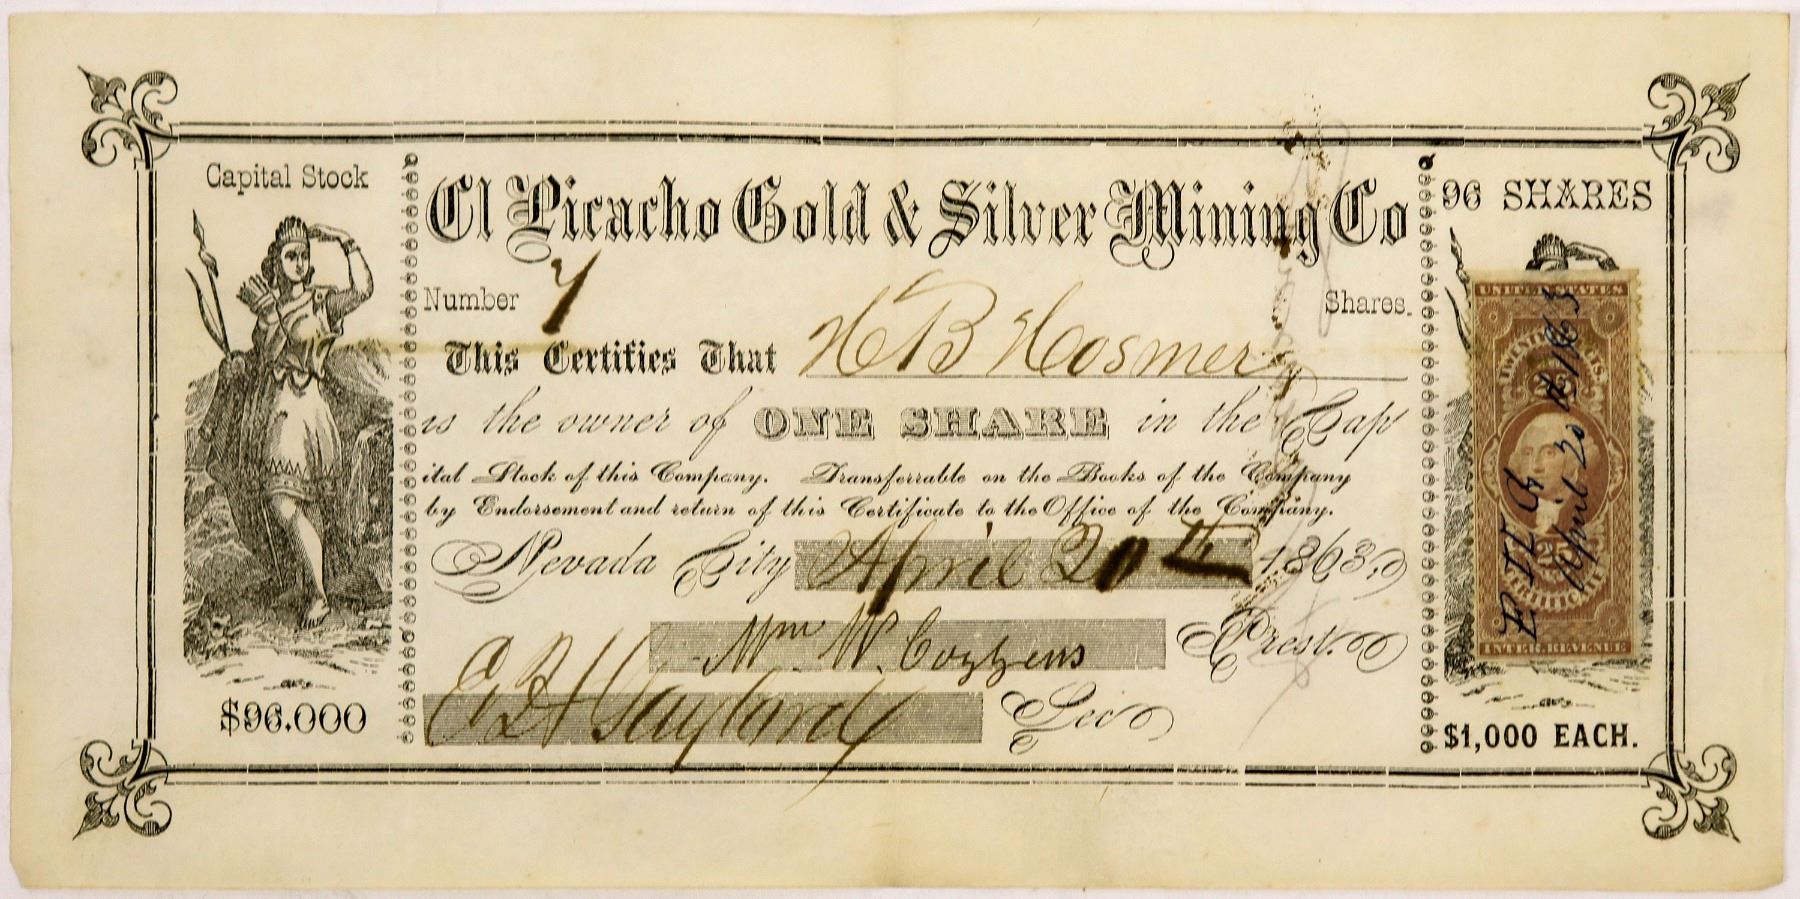 Capital Stock
$96.000
El Picacho Gold & Silver Mining Co
Number 7 Shares.
This Certifies That H B Hosmer
is the owner of ONE SHARE in the Cap
ital Stock of this Company. Transferrable on the Books of the Company
by Endorsement and return of this Certificate to the Office of the Company.
Nevada City April 20th 1863.
Wm. W. Cozzens Prest.
Sec
96 SHARES
UNITED STATES
25
CERTIFICATE
INTER. REVENUE
April 20
$1,000 EACH.